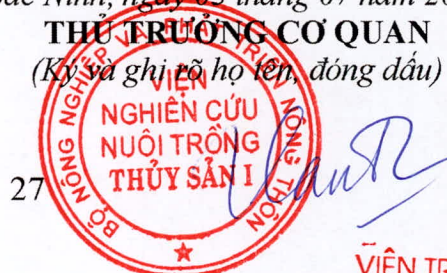 Bắc Ninh, ngày 03 tháng 07 năm 20
THỦ TRƯỞNG CƠ QUAN
(Ký và ghi rõ họ tên, đóng dấu)
BỘ NÔNG NGHIỆP VÀ PHÁT TRIỂN NÔNG THÔN
VIỆN
NGHIÊN CỨU
NUÔI TRỒNG
THỦY SẢN I
27
VIỆN TR